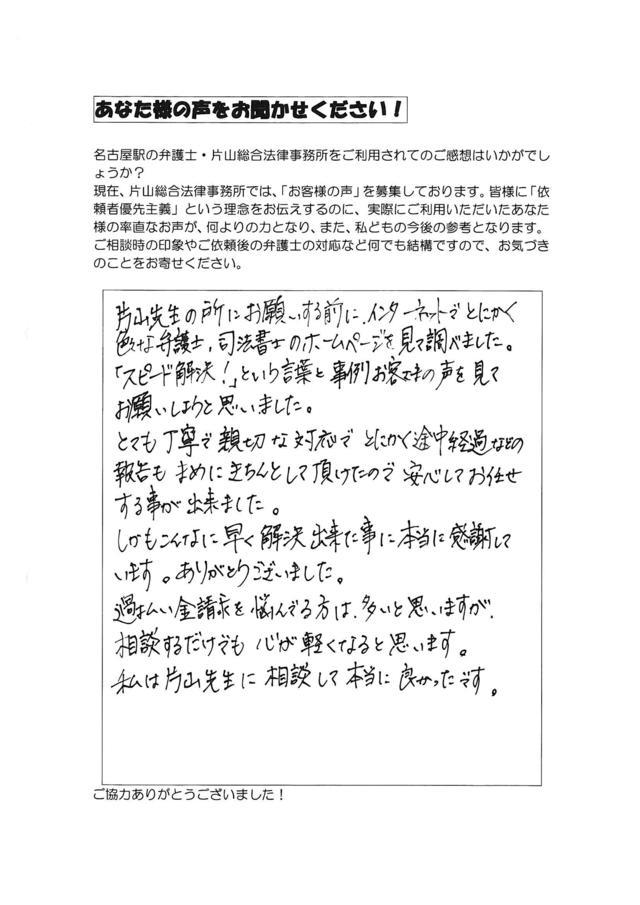 あなた様の声をお聞かせください！
名古屋駅の弁護士・片山総合法律事務所をご利用されてのご感想はいかがでし
ょうか？
現在、片山総合法律事務所では、「お客様の声」を募集しております。皆様に「依
頼者優先主義」という理念をお伝えするのに、実際にご利用いただいたあなた
様の率直なお声が、何よりの力となり、また、私どもの今後の参考となります。
ご相談時の印象やご依頼後の弁護士の対応など何でも結構ですので、お気づき
のことをお寄せください。
片山先生の所にお願いする前に、インターネットでとにかく
色々な弁護士、司法書士のホームページを見て調べました。
「スピード解決！」という言葉と事例お客様の声を見て
お願いしようと思いました。
とても丁寧で親切な対応で とにかく途中経過などの
報告も まめにきちんとして頂けたので 安心してお任せ
する事が出来ました。
しかもこんなに早く解決出来た事に本当に感謝して
います。ありがとうございました。
過払い金請求を悩んでる方は、多いと思いますが、
相談するだけでも 心が軽くなると思います。
私は片山先生に 相談して本当に良かったです。
ご協力ありがとうございました！